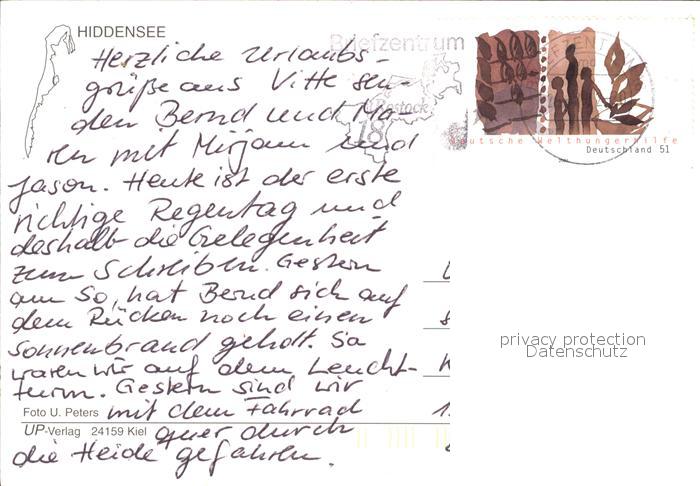 HIDDENSEE
Briefzentrum
Rostock
18
Deutsche Welthungerhilfe
Deutschland 51
Herzliche Urlaubs-
grüße aus Vitte sen-
den Bernd und Ma-
ren mit Mirjam und
Jason. Heute ist der erste
richtige Regentag und
deshalb die Gelegenheit
zum Schreiben. Gestern
am So, hat Bernd sich auf
dem Rücken noch einen
Sonnenbrand geholt. Sa
waren wir auf dem Leucht-
turm. Gestern sind wir
mit dem Fahrrad
quer durch
die Heide gefahren.
Foto U. Peters
UP-Verlag 24159 Kiel
privacy protection
Datenschutz